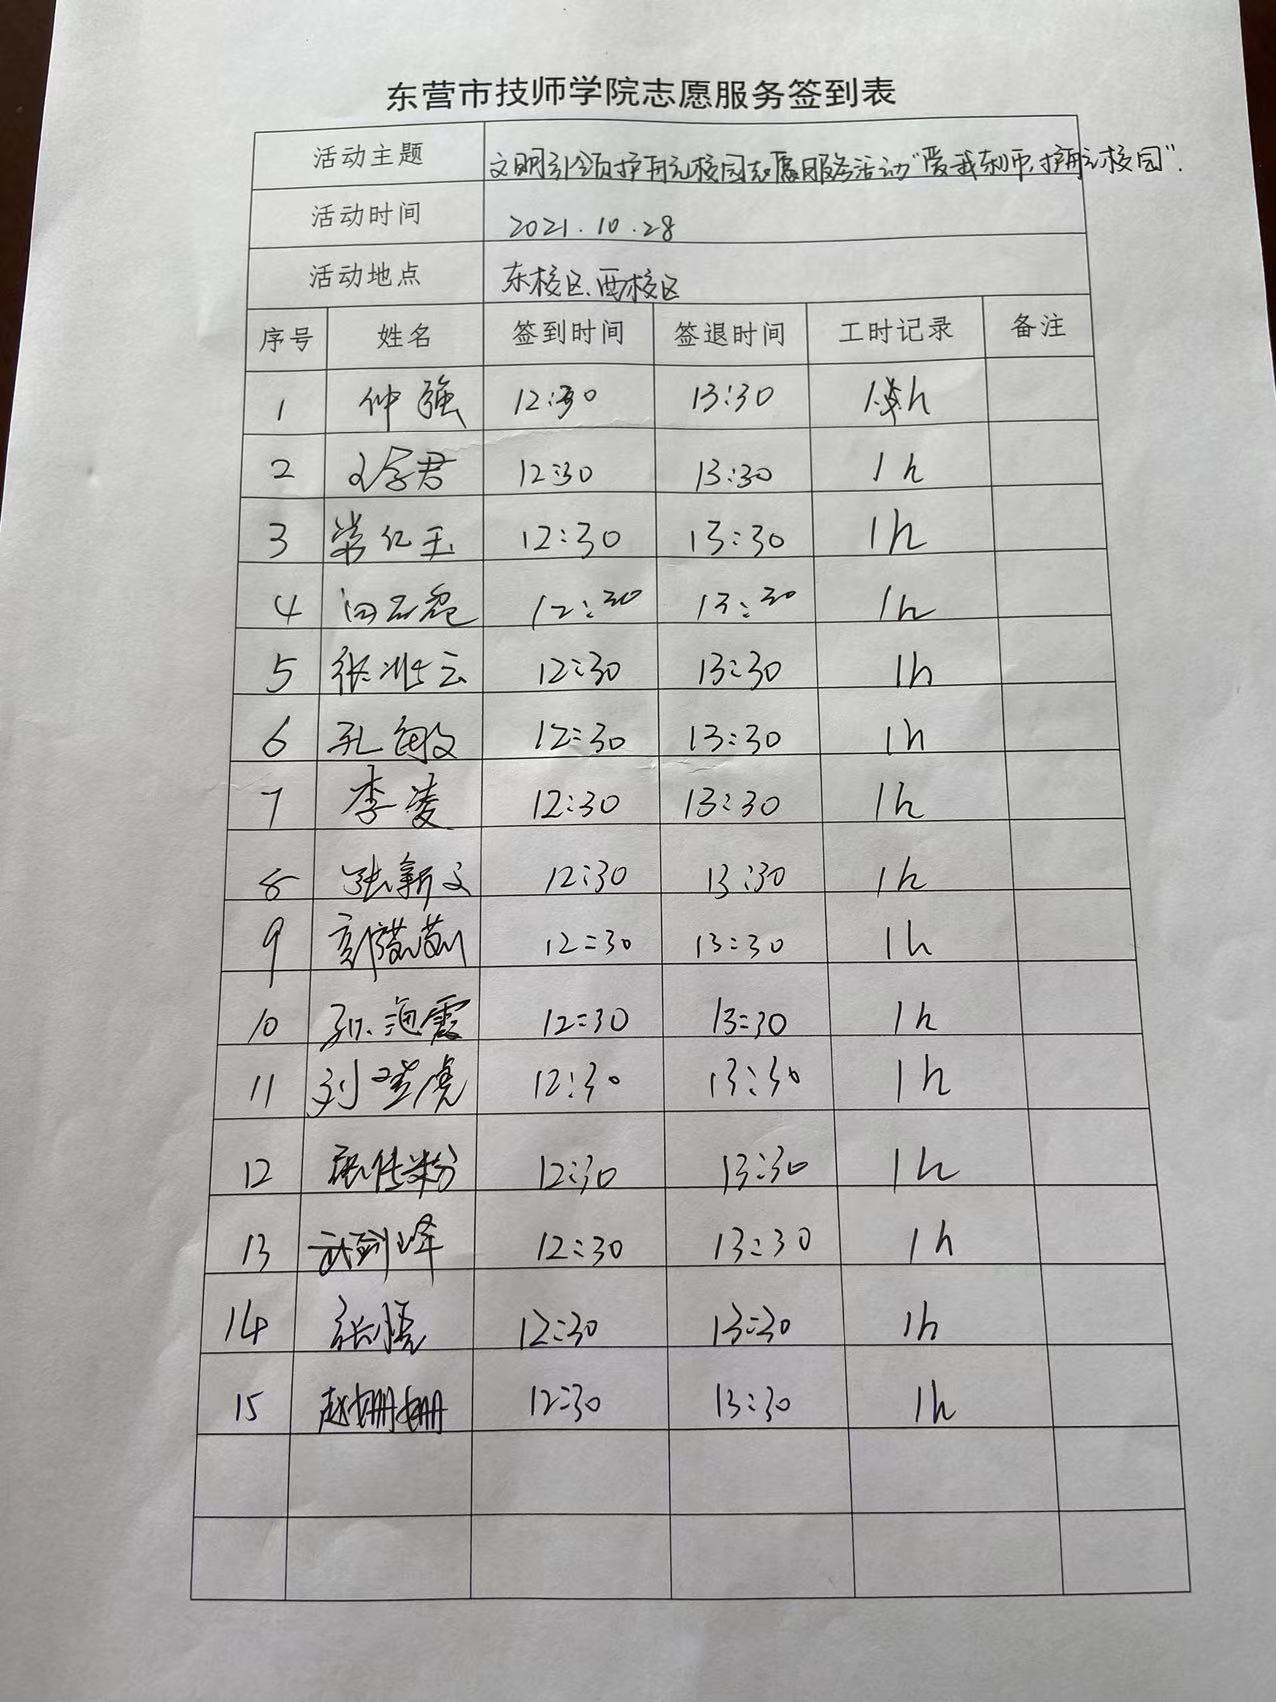 东营市技师学院志愿服务签到表
活动主题 文明引领护航校园志愿服务活动"爱我东师,护航校园".
活动时间 2021.10.28
活动地点 东校区、西校区
序号 姓名 签到时间 签退时间 工时记录 备注
1 仲强 12:30 13:30 1h
2 12:30 13:30 1h
3 常红玉 12:30 13:30 1h
4 12:30 13:30 1h
5 张洪云 12:30 13:30 1h
6 孔敏 12:30 13:30 1h
7 李凌 12:30 13:30 1h
8 张新文 12:30 13:30 1h
9 12:30 13:30 1h
10 孙海霞 12:30 13:30 1h
11 刘登虎 12:30 13:30 1h
12 12:30 13:30 1h
13 武剑峰 12:30 13:30 1h
14 12:30 13:30 1h
15 赵姗姗 12:30 13:30 1h